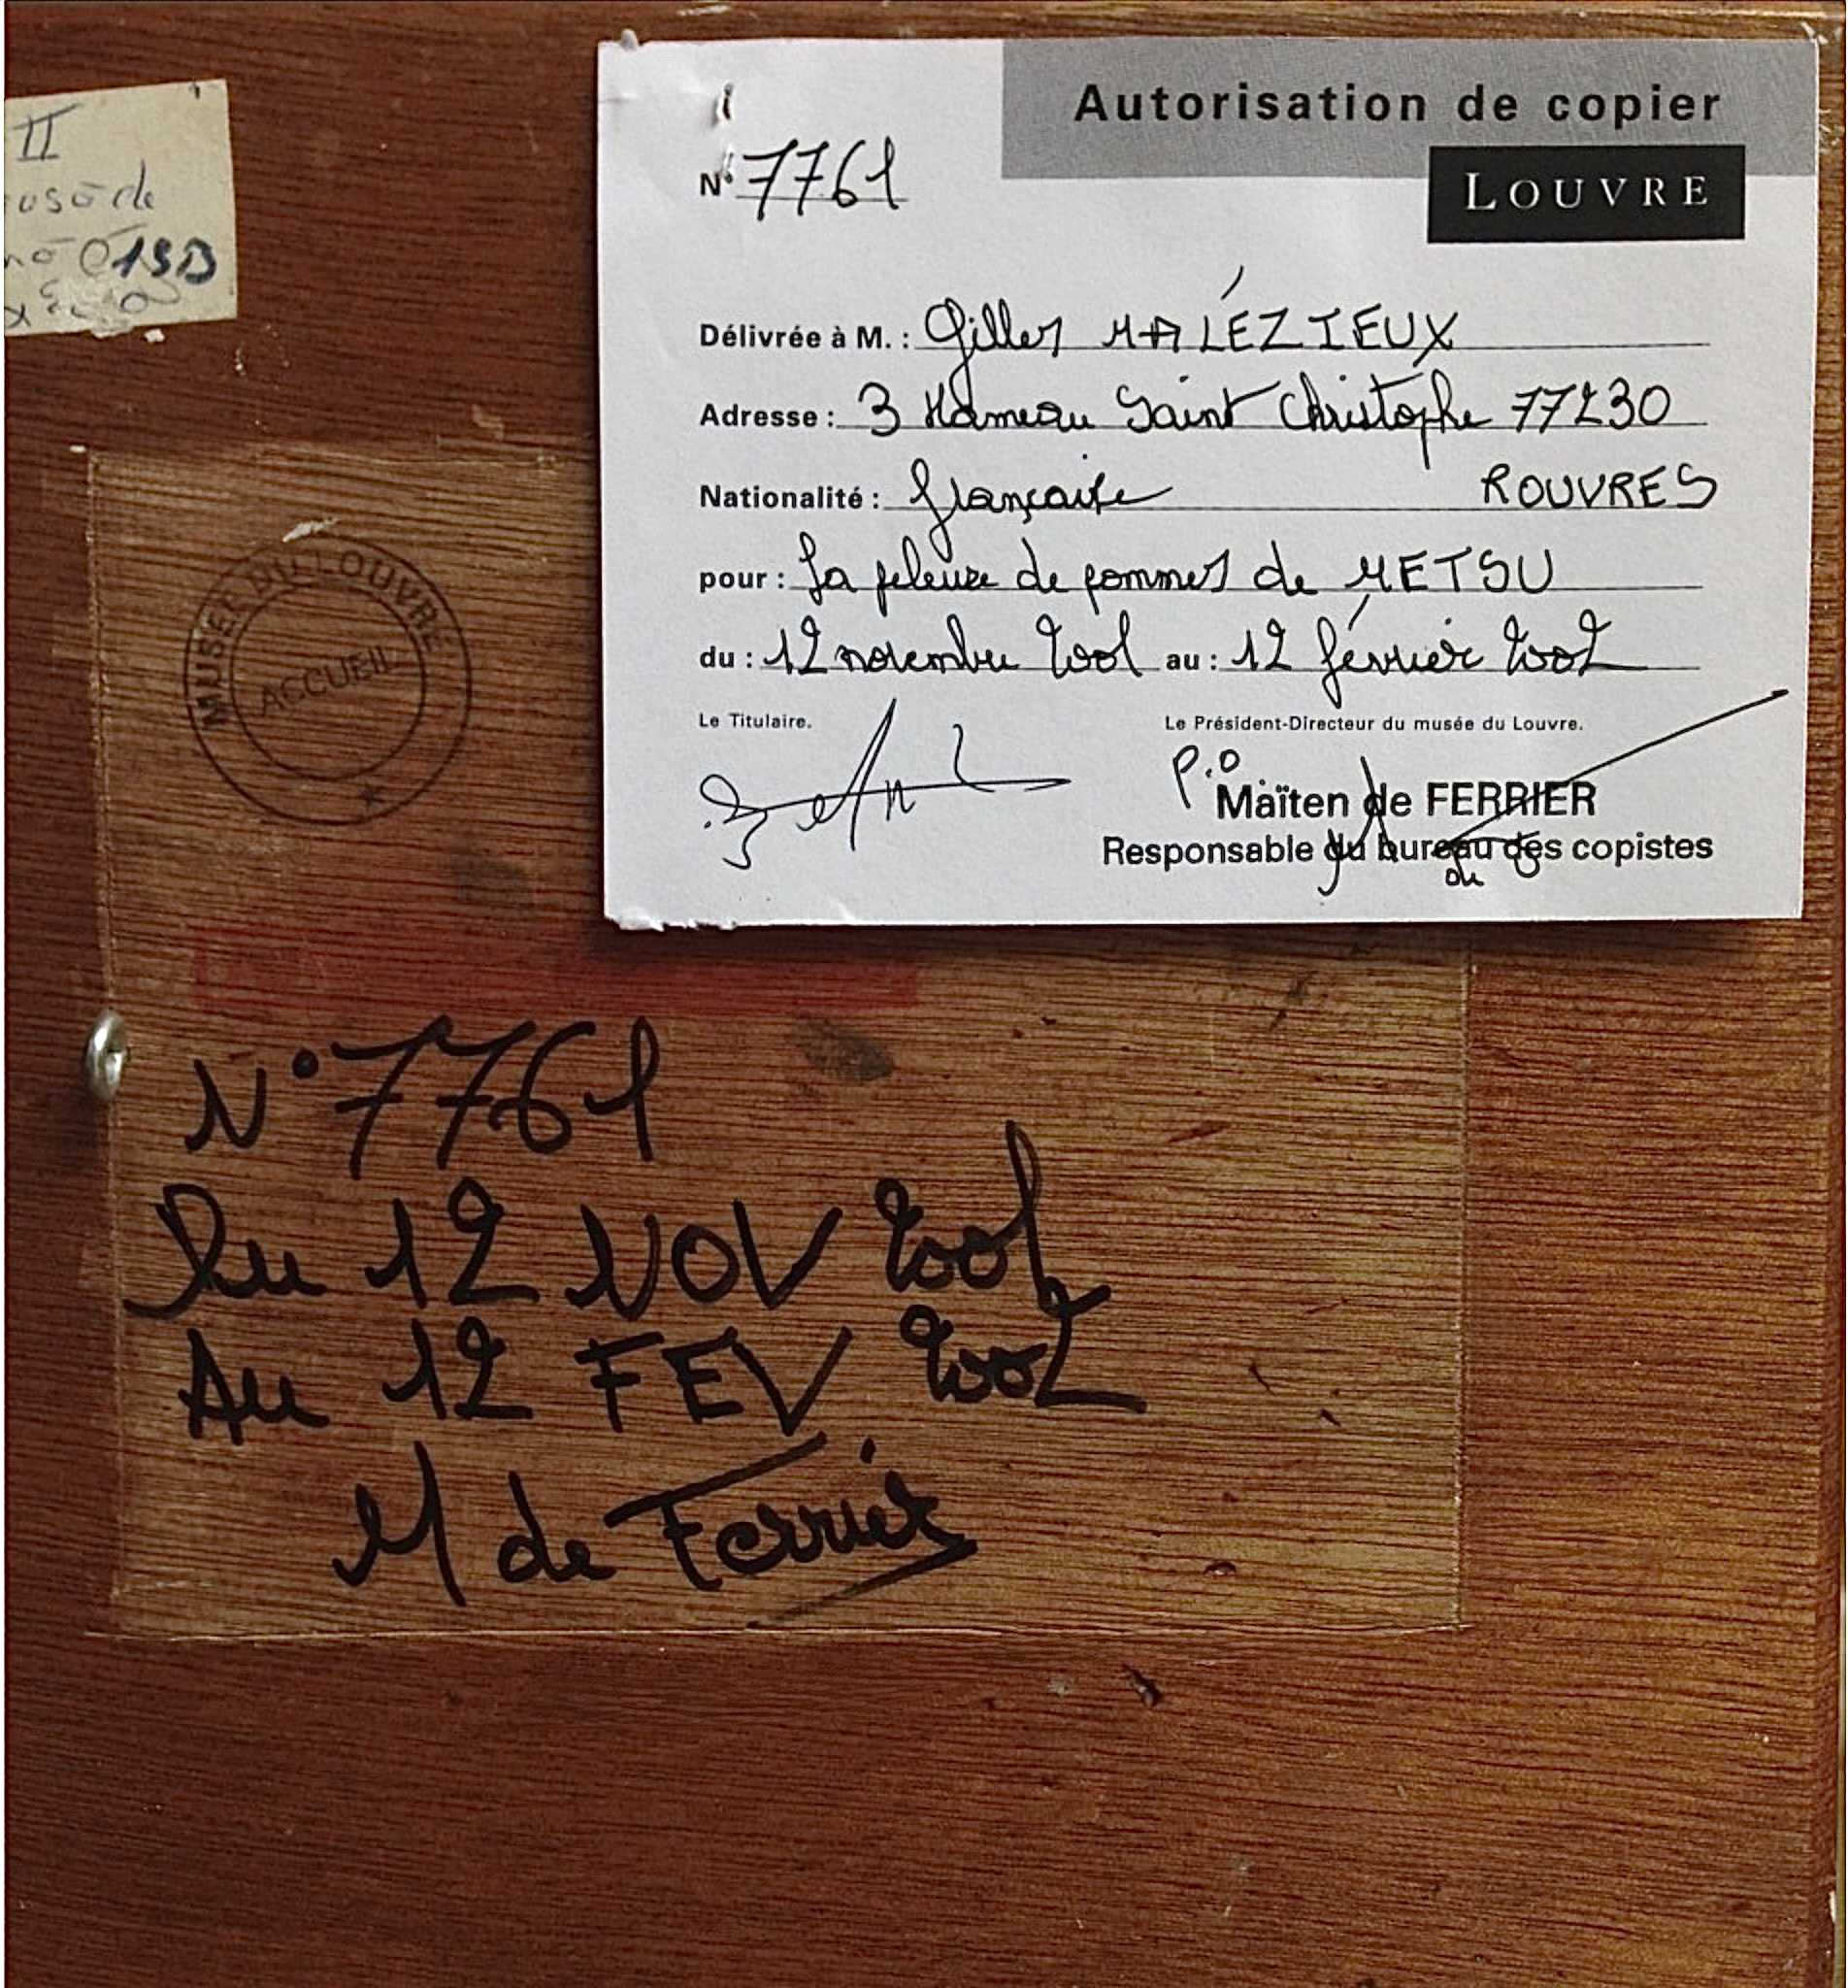 II
01SD
Autorisation de copier
LOUVRE
N° 7761
Délivrée à M. : Gilles MALÉZIEUX
Adresse : 3 Hameau Saint Christophe 77230
Nationalité : française ROUVRES
pour : La peleuse de pommes de METSU
du : 12 novembre 2001 au : 12 février 2002
Le Titulaire. Le Président-Directeur du musée du Louvre.
P.O
Maïten de FERRIER
Responsable du bureau des copistes
MUSEE DU LOUVRE
ACCUEIL
N° 7761
Du 12 NOV 2001
Au 12 FEV 2002
M de Ferrier